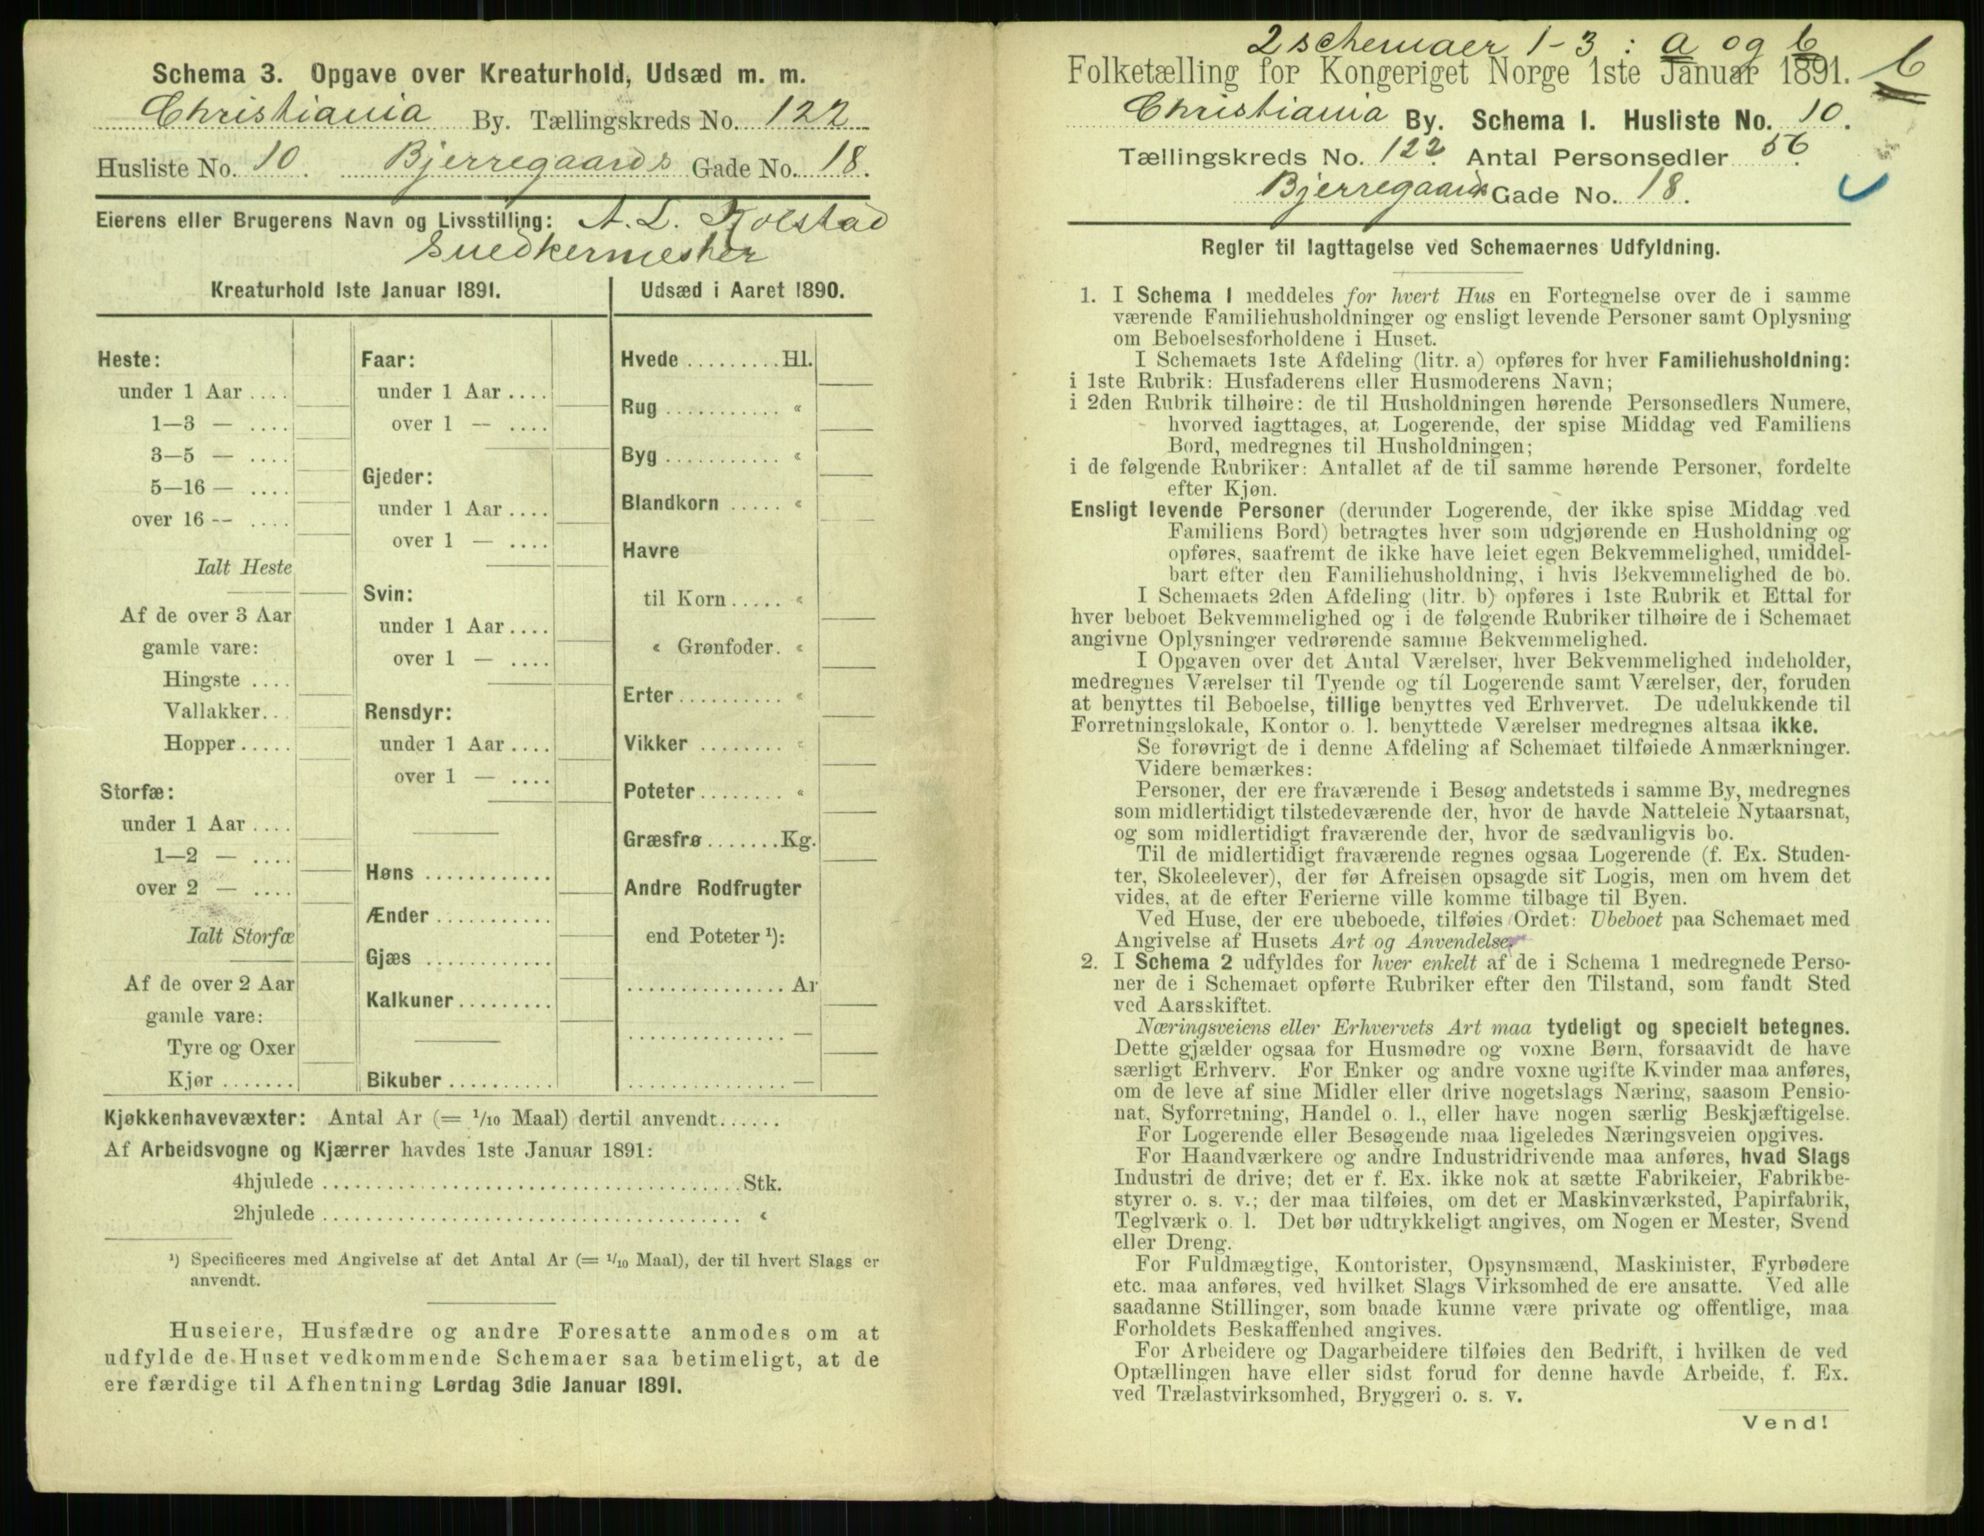 Schema 3. Opgave over Kreaturhold, Udsæd m. m.
Christiania By. Tællingskreds No. 122
Husliste No. 10. Bjerregaards Gade No. 18.
Eierens eller Brugerens Navn og Livsstilling: A. L. Kolstad
Snedkermester
Kreaturhold 1ste Januar 1891.
Heste:
under 1 Aar ....
1—3 — ....
3—5 — ....
5—16 — ....
over 16 -- ....
Ialt Heste
Af de over 3 Aar
gamle vare:
Hingste ....
Vallakker...
Hopper.....
Storfæ:
under 1 Aar ....
1—2 — ....
over 2 — ....
Ialt Storfæ
Af de over 2 Aar
gamle vare:
Tyre og Oxer
Kjør .......
Faar:
under 1 Aar ....
over 1 — ....
Gjeder:
under 1 Aar ....
over 1 — ....
Svin:
under 1 Aar ....
over 1 — ....
Rensdyr:
under 1 Aar ....
over 1 — ....
Høns ............
Ænder ...........
Gjæs ............
Kalkuner .........
Bikuber ..........
Udsæd i Aaret 1890.
Hvede .........Hl.
Rug ........... «
Byg ........... «
Blandkorn ..... «
Havre
til Korn ..... «
« Grønfoder. «
Erter .......... «
Vikker ........ «
Poteter ........ «
Græsfrø .......Kg.
Andre Rodfrugter
end Poteter ¹):
............... Ar
............... —
............... —
Kjøkkenhavevæxter: Antal Ar (= 1/10 Maal) dertil anvendt......
Af Arbeidsvogne og Kjærrer havdes 1ste Januar 1891:
4hjulede ........................................Stk.
2hjulede ........................................ «
¹) Specificeres med Angivelse af det Antal Ar (= 1/10 Maal), der til hvert Slags er
anvendt.
Huseiere, Husfædre og andre Foresatte anmodes om at
udfylde de Huset vedkommende Schemaer saa betimeligt, at de
ere færdige til Afhentning Lørdag 3die Januar 1891.
2 schemaer 1-3 : a og b
Folketælling for Kongeriget Norge 1ste Januar 1891. b
Christiania By. Schema I. Husliste No. 10.
Tællingskreds No. 122 Antal Personsedler 56
Bjerregaards Gade No. 18.
Regler til Iagttagelse ved Schemaernes Udfyldning.
1. I Schema 1 meddeles for hvert Hus en Fortegnelse over de i samme
værende Familiehusholdninger og ensligt levende Personer samt Oplysning
om Beboelsesforholdene i Huset.
I Schemaets 1ste Afdeling (litr. a) opføres for hver Familiehusholdning:
i 1ste Rubrik: Husfaderens eller Husmoderens Navn;
i 2den Rubrik tilhøire: de til Husholdningen hørende Personsedlers Numere,
hvorved iagttages, at Logerende, der spise Middag ved Familiens
Bord, medregnes til Husholdningen;
i de følgende Rubriker: Antallet af de til samme hørende Personer, fordelte
efter Kjøn.
Ensligt levende Personer (derunder Logerende, der ikke spise Middag ved
Familiens Bord) betragtes hver som udgjørende en Husholdning og
opføres, saafremt de ikke have leiet egen Bekvemmelighed, umiddel-
bart efter den Familiehusholdning, i hvis Bekvemmelighed de bo.
I Schemaets 2den Afdeling (litr. b) opføres i 1ste Rubrik et Ettal for
hver beboet Bekvemmelighed og i de følgende Rubriker tilhøire de i Schemaet
angivne Oplysninger vedrørende samme Bekvemmelighed.
I Opgaven over det Antal Værelser, hver Bekvemmelighed indeholder,
medregnes Værelser til Tyende og til Logerende samt Værelser, der, foruden
at benyttes til Beboelse, tillige benyttes ved Erhvervet. De udelukkende til
Forretningslokale, Kontor o. l. benyttede Værelser medregnes altsaa ikke.
Se forøvrigt de i denne Afdeling af Schemaet tilføiede Anmærkninger.
Videre bemærkes:
Personer, der ere fraværende i Besøg andetsteds i samme By, medregnes
som midlertidigt tilstedeværende der, hvor de havde Natteleie Nytaarsnat,
og som midlertidigt fraværende der, hvor de sædvanligvis bo.
Til de midlertidigt fraværende regnes ogsaa Logerende (f. Ex. Studen-
ter, Skoleelever), der før Afreisen opsagde sit Logis, men om hvem det
vides, at de efter Ferierne ville komme tilbage til Byen.
Ved Huse, der ere ubeboede, tilføies Ordet: Ubeboet paa Schemaet med
Angivelse af Husets Art og Anvendelse.
2. I Schema 2 udfyldes for hver enkelt af de i Schema 1 medregnede Perso-
ner de i Schemaet opførte Rubriker efter den Tilstand, som fandt Sted
ved Aarsskiftet.
Næringsveiens eller Erhvervets Art maa tydeligt og specielt betegnes.
Dette gjælder ogsaa for Husmødre og voxne Børn, forsaavidt de have
særligt Erhverv. For Enker og andre voxne ugifte Kvinder maa anføres,
om de leve af sine Midler eller drive nogetslags Næring, saasom Pensio-
nat, Syforretning, Handel o. l., eller have nogen særlig Beskjæftigelse.
For Logerende eller Besøgende maa ligeledes Næringsveien opgives.
For Haandværkere og andre Industridrivende maa anføres, hvad Slags
Industri de drive; det er f. Ex. ikke nok at sætte Fabrikeier, Fabrikbe-
styrer o. s. v.; der maa tilføies, om det er Maskinværksted, Papirfabrik,
Teglværk o. l. Det bør udtrykkeligt angives, om Nogen er Mester, Svend
eller Dreng.
For Fuldmægtige, Kontorister, Opsynsmænd, Maskinister, Fyrbødere
etc. maa anføres, ved hvilket Slags Virksomhed de ere ansatte. Ved alle
saadanne Stillinger, som baade kunne være private og offentlige, maa
Forholdets Beskaffenhed angives.
For Arbeidere og Dagarbeidere tilføies den Bedrift, i hvilken de ved
Optællingen have eller sidst forud for denne havde Arbeide, f. Ex.
ved Trælastvirksomhed, Bryggeri o. s. v.
Vend!